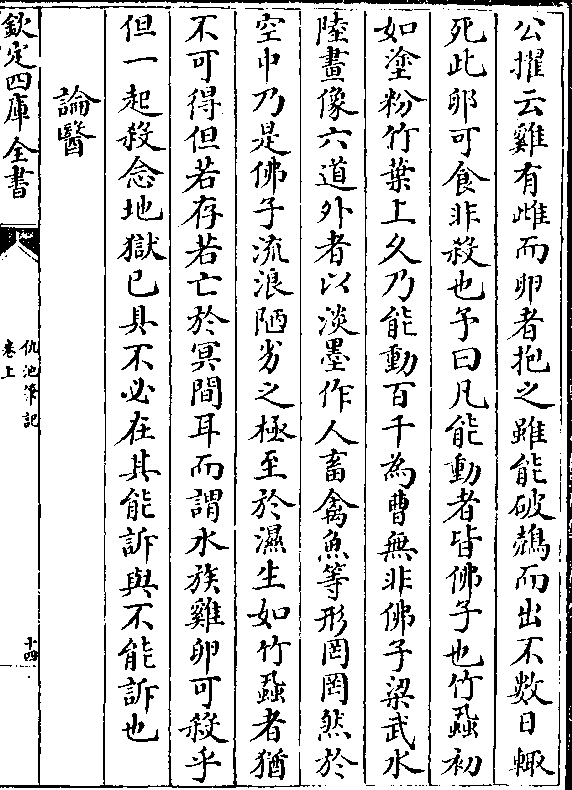 公擢云雞有雌而卵者抱之雖能破鷇而出不數日輙
死此卵可食非殺也予曰凡能動者皆佛子也竹蝨初
如塗粉竹葉上久乃能動百千為曹無非佛子梁武水
陸畫像六道外者以淡墨作人畜禽魚等形罔罔然於
空中乃是佛子流浪陋劣之極至於濕生如竹蝨者猶
不可得但若存若亡於冥間耳而謂水族雞卵可殺乎
但一起殺念地獄已具不必在其能訴與不能訴也
論醫
欽定四庫全書
仇池筆記
卷上
十四